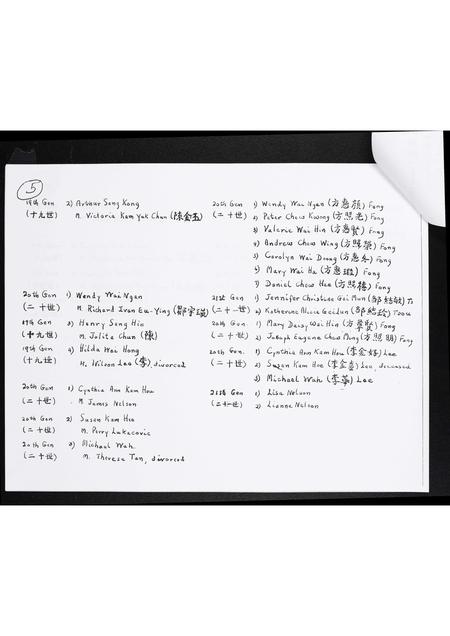 5
19th Gen 2) Arthur Sung Kong 20th Gen 1) Wendy Wai Ngan (方惠顏) Fong
(十九世) M. Victoria Kam Yuk Chan (陳金玉) (二十世) 2) Peter Chow Kwong (方照光) Fong
3) Valerie Wai Hin (方惠賢) Fong
4) Andrew Chow Wing (方照榮) Fong
5) Carolyn Wai Doong (方惠冬) Fong
6) Mary Wai Ha (方惠) Fong
7) Daniel Chow Hee (方照) Fong
20th Gen 1) Wendy Wai Ngan 21st Gen 1) Jennifer Christine Gei Mun
(二十世) M. Richard Ivan Eu-Ying (二十一世) 2) Katherine Alicia
19th Gen 3) Henry Sung Hin 20th Gen 1) Mary Daisy Wai Hin Fong
(十九世) M. Jolita Chun (陳) (二十世) 2) Joseph Eugene Chow Ming Fong
19th Gen 4) Hilda Wai Hong 20th Gen. 1) Cynthia Ann Kam Hou (李金好) Lee
(十九世) M. Wilson Lee (李), divorced (二十世) 2) Susan Kam Hee Lee, deceased
3) Michael Wah (李華) Lee
20th Gen 1) Cynthia Ann Kam Hou 21st Gen 1) Lisa Nelson
(二十世) M James Nelson (二十一世) 2) Lianne Nelson
20th Gen 2) Susan Kam Hee
(二十世) M. Perry Lukacovic
20th Gen 3) Michael Wah
(二十世) M. Theresa Tan, divorced